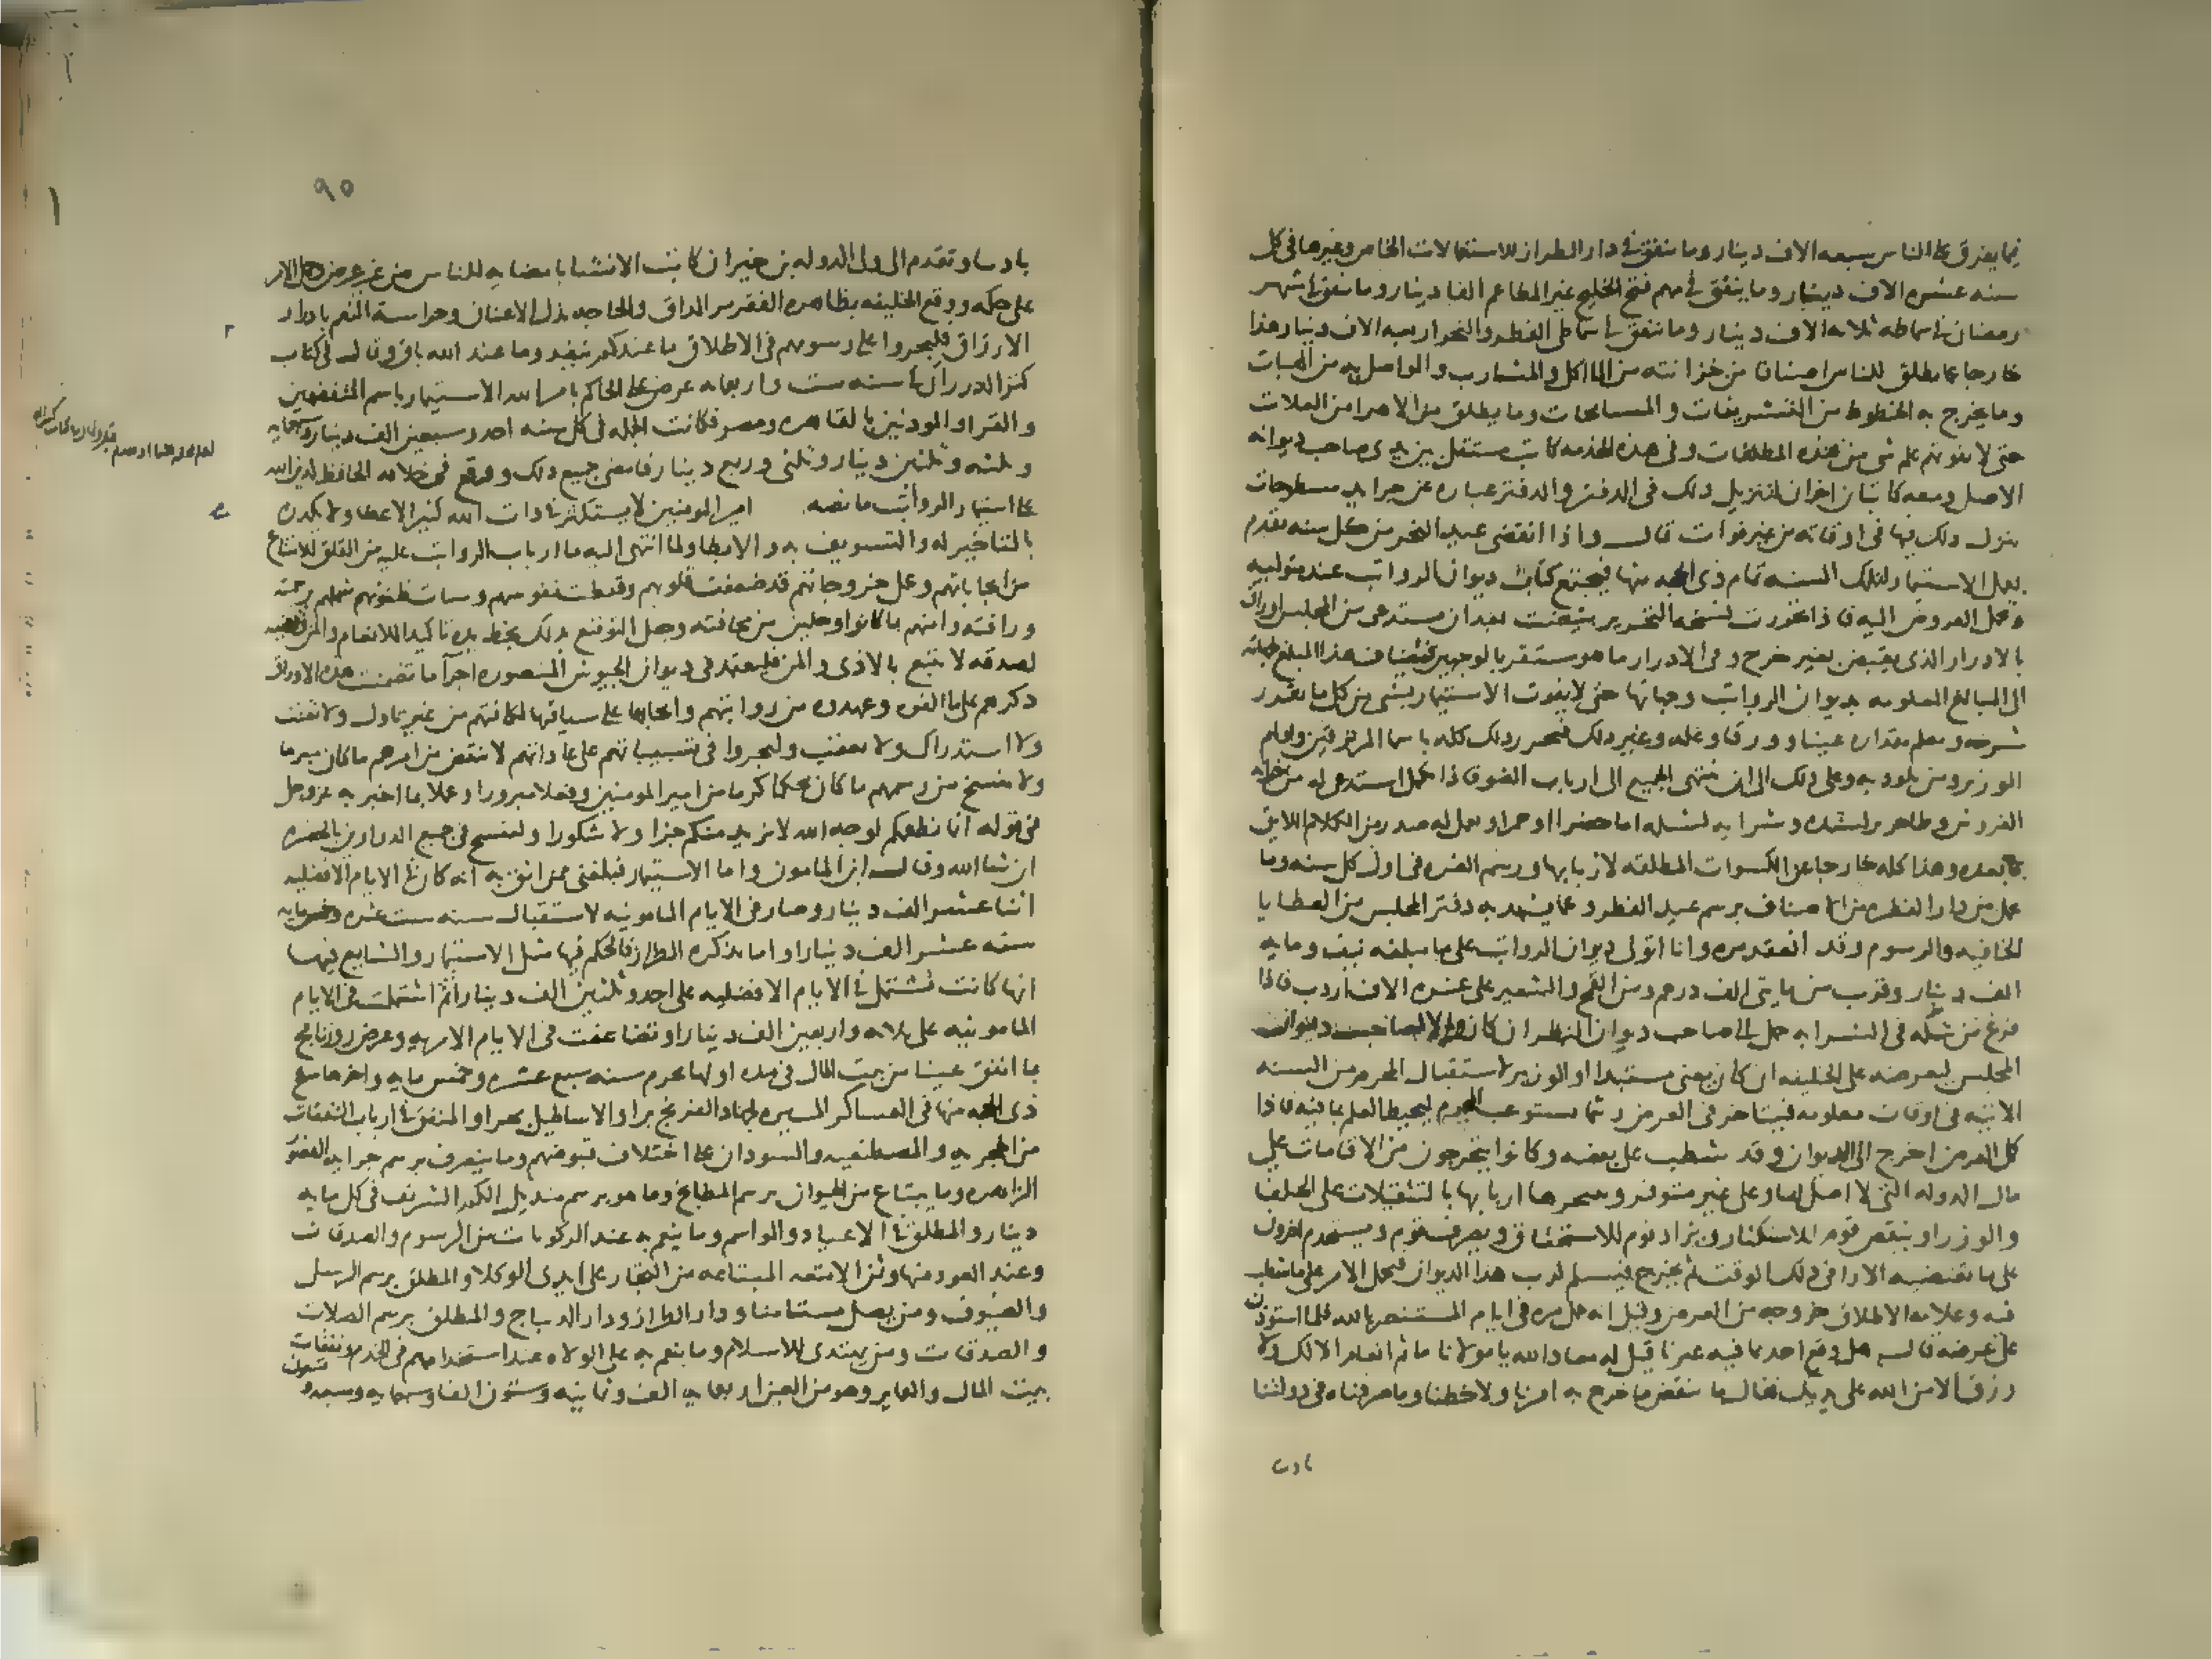 فيما يفرق على الناس سبعه الاف دينار وما ينفق في دار الطراز للاستعمالات الخاص وغيرها في كل
سنه عشره الاف دينار وما ينفق في مهم فتح الخليج غير المطاعم الفا دينار وما ينفق في شهر
رمضان في اسمطه ثلاثه الاف دينار وما ينفق في سماطي الفطر والنحر اربعه الاف دينار هذا
خارجا عما يطلق للناس اصنافا من خزانته من الماكل والمشارب والواصل به من الهبات
وما يخرج به الخطوط من التشريفات والمسامحات وما يطلق من الاهرا من الغلات
حتى لا يفوتهم علم شي من هذه المطلقات وفي هذه الخدمه كاتب مستقل بين يدي صاحب ديوانه
الاصل ومعه كاتبان اخران لتنزيل ذلك في الدفتر والدفتر عباره عن جرايد مسطوحات
ينزل ذلك فيها في اوقاته من غير فوات قال واذا انقضى عيد النحر من كل سنه تقدم
بعمل الاستيمار لتلك السنه تمام ذي الحجه منها فيجتمع كتاب ديوان الرواتب عند متوليه
وتحمل العروض اليه فاذا تحررت نسخه التحرير بيضت بعد ان يستدعى من المجلس اوراق
بالادرار الذي يقبض بغير خرج وفي الادرار ما هو مستقر بالوجهين فيضاف هذا المبلغ بجهاته
الى المبالغ المعلومه بديوان الرواتب وجهاتها حتى لا يفوت الاستيمار شي من كل ما تقرر
شرحه ويعلم مقداره عينا وورقا وغله وغير ذلك فيحرر ذلك كله باسما المرتزقين واولهم
الوزير ومن يلوذ به وعلى ذلك الى ان ينتهي الجميع الى ارباب الضوء فاذا تكمل استدعي له من خزاين
الفروش وطا حرير لشده وشرابه لمسكه اما خضرا او حمرا ويعمل له صدر من الكلام اللايق
بما بعده وهذا كله خارجا عن الكسوات المطلقه لاربابها ورسم الغره في اول كل سنه وما
يحمل من دار الفطره من الاصناف برسم عيد الفطر وعما يشهد به دفتر المجلس من العطايا
الخافيه والرسوم وقد انعقد مره وانا اتولى ديوان الرواتب على ما مبلغه نيف ومايه
الف دينار وقريب من مايتي الف درهم ومن القمح والشعير على عشره الاف اردب فاذا
فرغ من شكله في الشرابه حمل الى صاحب ديوان النظر ان كان والا لصاحب ديوان
المجلس ليعرضه على الخليفه ان كان يعني مستبدا او الوزير لاستقبال المحرم من السنه
الاتيه في اوقات معلومه فيتاخر في العرض وربما يستوعب المحرم ليحيط العلم بما فيه فاذا
كمل العرض اخرج الى الديوان وقد شطب على بعضه وكانوا يتحرجون من الاقامات على
مال الدوله التي لا اصل لها وعلى غير متوفر وينجزها اربابها بالتثقيلات على الخلفا
والوزرا وينقص قوم للاستكثار ويزاد قوم للاستحقاق ويصرف قوم ويستخدم اخرون
على ما تقتضيه الارا في ذلك الوقت ثم يخرج فيسلم لرب هذا الديوان فيحمل الامر على ما شطب
فيه وعلامه الاطلاق خروجه من العرض وقيل انه عمل مره في ايام المستنصر بالله فلما استوذن
على عرضه قال هل وقع احد بما فيه غيرنا قيل له معاذ الله يا مولانا ما تم انعام الا لك ولا
رزق الا من الله على يديك فقال ما ينقض ما خرج به امرنا ولا خطنا وما صرفناه في دولتنا
بادن
٩٥
باذننا وتقدم الى ولي الدوله بن خيران كاتب الانشا بامضايه للناس من غير عرض وحمل الامر
على حكمه ووقع الخليفه بظاهره الفقر مر المذاق والحاجه تذل الاعناق وحراسة النعم بادرار
الارزاق فليجروا على رسومهم في الاطلاق ما عندكم ينفد وما عند الله باق وقال في كتاب
كنز الدرر ان في سنه ست واربعمايه عرض على الحاكم بامر الله الاستيمار باسم المتفقهين
والقرا والموذنين بالقاهره ومصر فكانت الجمله في كل سنه احد وسبعين الف دينار وسبعمايه
وثلثه وثلثين دينار وثلثي وربع دينار فامضى جميع ذلك ووقع في خلافه الحافظ لدين الله
على استيمار الرواتب ما نصه امير المومنين لا يستكثر في ذات الله كثير الاعطا ولا يكدره
بالتاخير له والتسويف به والابطا ولما انتهى اليه ما ارباب الرواتب عليه من القلق للامتناع
من ايجاباتهم وحمل خروجاتهم قد ضعفت قلوبهم وقنطت نفوسهم وسات ظنونهم شملهم برحمته
ورافته وامنهم مما كانوا وجلين من مخافته وجعل التوقيع بذلك بخط يده تاكيدا للانعام والمن وتهنيه
لصدقه لا تتبع بالاذى والمن فليعتمد في ديوان الجيوش المنصوره اجرا ما تضمنت هذه الاوراق
ذكرهم على ما الفوه وعهدوه من رواتبهم وايجابها على سياقها لكافتهم من غير تاول ولا تعنت
ولا استدراك ولا تعقب وليجروا في تسبيباتهم على عاداتهم لا ينقض من امرهم ما كان مبرما
ولا ينسخ من رسمهم ما كان محكما كرما من امير المومنين وفعلا مبرورا وعملا بما اخبر به عز وجل
في قوله انما نطعمكم لوجه الله لا نريد منكم جزا ولا شكورا ولينسخ في جميع الدواوين بالحضره
ان شا الله وقال ابن المامون واما الاستيمار فبلغني عمن اثق به انه كان في الايام الافضليه
اثنا عشر الف دينار وصار في الايام المامونيه لاستقبال سنه ست عشره وخمسمايه
سته عشر الف دينارا واما تذكره الطراز فالحكم فيها مثل الاستيمار والشايع فيها
انها كانت تشتمل في الايام الافضليه على احد وثلثين الف دينار ثم اشتملت في الايام
المامونيه على ثلاثه واربعين الف دينارا وتضاعفت في الايام الامريه وعرض روزنامج
بما انفق عينا من بيت المال في مده اولها محرم سنه سبع عشره وخمس مايه واخرها سلخ
ذي الحجه منها في العساكر المسيره لجهاد الفرنج برا والاساطيل بحرا والمنفق في ارباب النفقات
من الحجريه والمصطنعيه والسودان على اختلاف قبوضهم وما ينصرف برسم خزانه القصور
الزاهره وما يبتاع من الحيوان برسم المطابخ وما هو برسم منديل الكم الشريف في كل مايه
دينار والمطلق في الاعياد والمواسم وما ينعم به عند الركوبات من الرسوم والصدقات
وعند العود منها وثمن الامتعه المبتاعه من التجار على ايدي الوكلا والمطلق برسم الرسل
والضيوف ومن يصل مستامنا ودار الطراز ودار الديباج والمطلق برسم الصلات
والصدقات ومن يهتدي للاسلام وما ينعم به على الولاه عند استخدامهم في الخدم ونفقات
بيت المال والعماير وهو من العين اربعمايه الف وثمانيه وستون الفا وسبعمايه وسبعه وتسعون